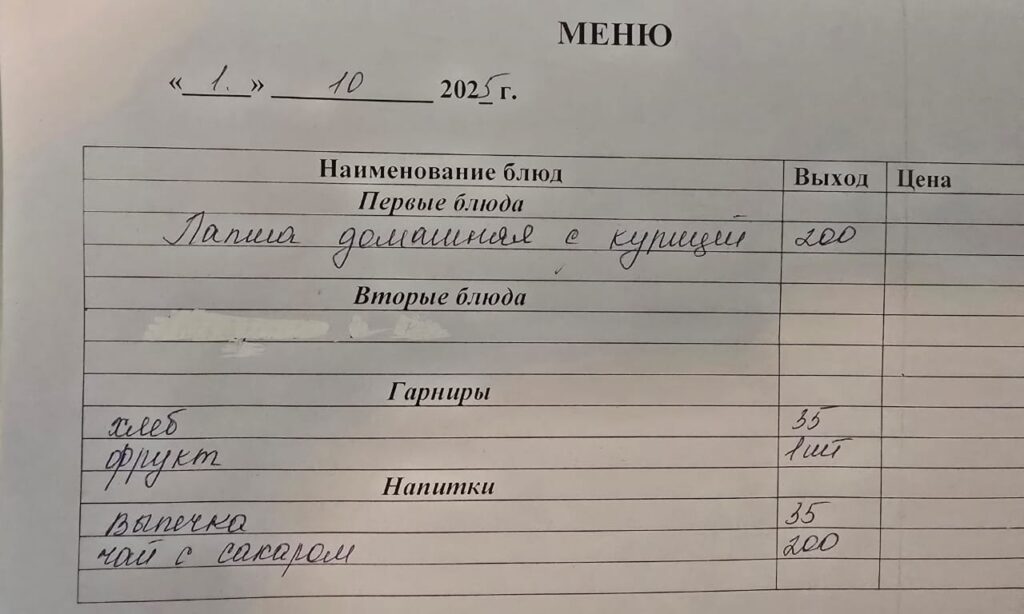 МЕНЮ
« 1. » 10 2025 г.
Наименование блюд Выход Цена
Первые блюда
Лапша домашняя с курицей 200
Вторые блюда
Гарниры
хлеб 35
фрукт 1шт
Напитки
выпечка 35
чай с сакаром 200